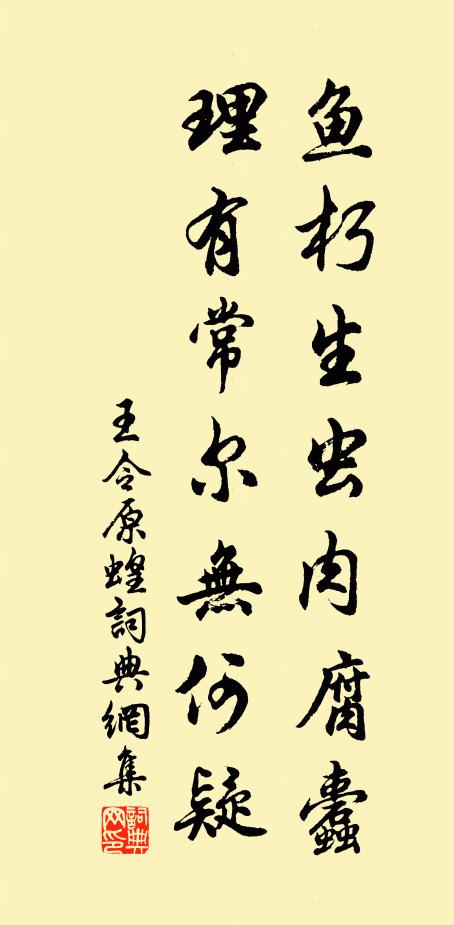 鱼朽生虫肉腐蠹
理有常尔無何疑
王令原蝗詞典網集
詞典網印